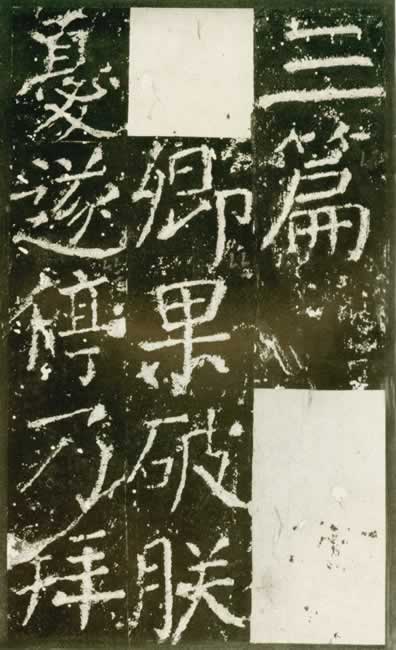 三篇
卿果破朕
憂遂停乃拜